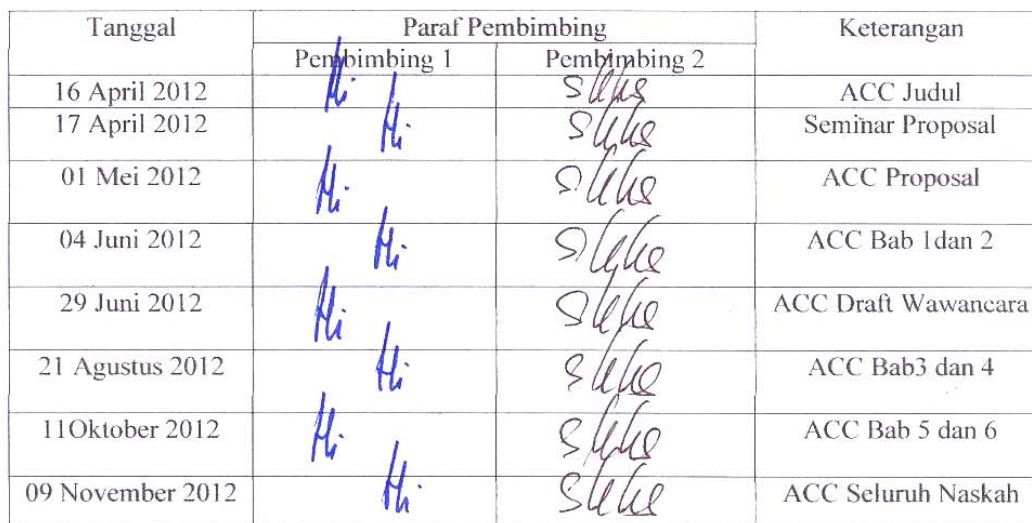 Tanggal Paraf Pembimbing Keterangan
Pembimbing 1 Pembimbing 2
16 April 2012 ACC Judul
17 April 2012 Seminar Proposal
01 Mei 2012 ACC Proposal
04 Juni 2012 ACC Bab 1dan 2
29 Juni 2012 ACC Draft Wawancara
21 Agustus 2012 ACC Bab3 dan 4
11Oktober 2012 ACC Bab 5 dan 6
09 November 2012 ACC Seluruh Naskah